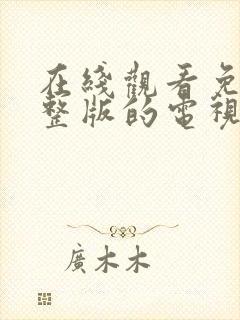 在綫觀看免
整版的電視
廣木木